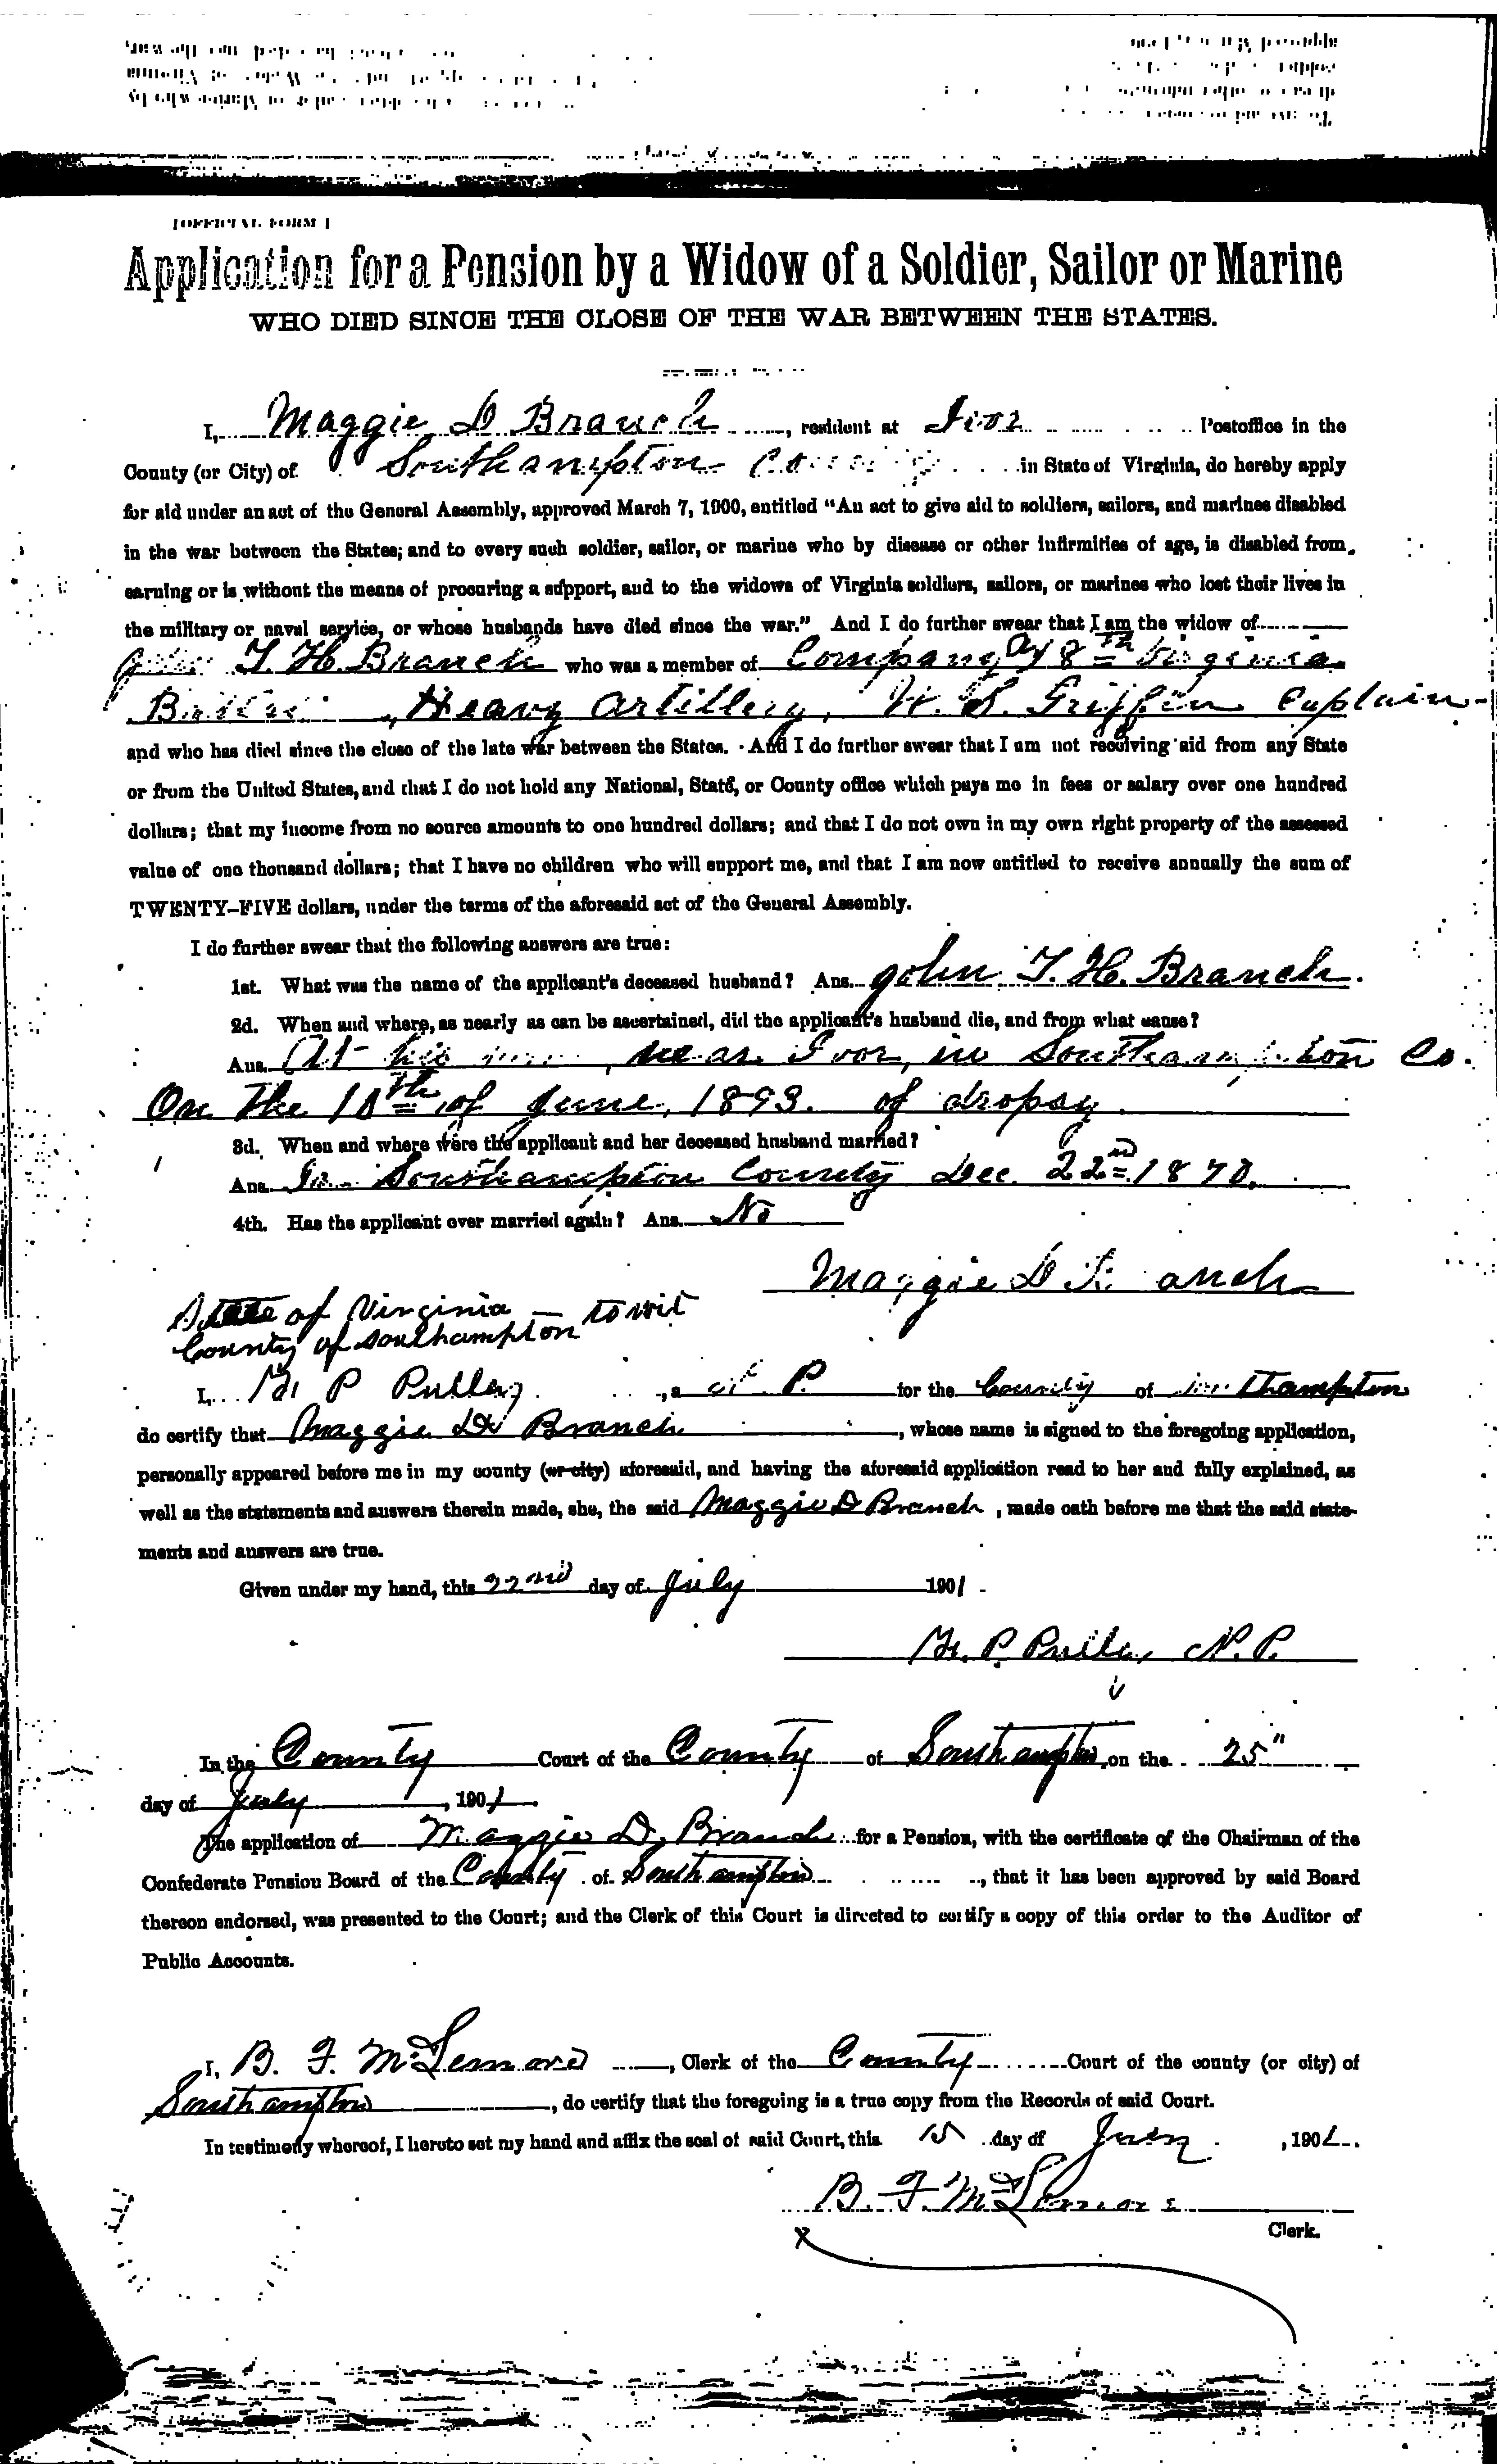 [OFFICIAL FORM]
Application for a Pension by a Widow of a Soldier, Sailor or Marine
WHO DIED SINCE THE CLOSE OF THE WAR BETWEEN THE STATES.
I, Maggie D Branch, resident at Ivor Postoffice in the
County (or City) of Southampton County in State of Virginia, do hereby apply
for aid under an act of the General Assembly, approved March 7, 1900, entitled "An act to give aid to soldiers, sailors, and marines disabled
in the war between the States; and to every such soldier, sailor, or marine who by disease or other infirmities of age, is disabled from
earning or is without the means of procuring a support, and to the widows of Virginia soldiers, sailors, or marines who lost their lives in
the military or naval service, or whose husbands have died since the war." And I do further swear that I am the widow of
John T. H. Branch who was a member of Company 18th Virginia
Heavy Artillery, W. S. Griffin Captain
and who has died since the close of the late war between the States. And I do further swear that I am not receiving aid from any State
or from the United States, and that I do not hold any National, State, or County office which pays me in fees or salary over one hundred
dollars; that my income from no source amounts to one hundred dollars; and that I do not own in my own right property of the assessed
value of one thousand dollars; that I have no children who will support me, and that I am now entitled to receive annually the sum of
TWENTY-FIVE dollars, under the terms of the aforesaid act of the General Assembly.
I do further swear that the following answers are true:
1st. What was the name of the applicant's deceased husband? Ans. John T. H. Branch.
2d. When and where, as nearly as can be ascertained, did the applicant's husband die, and from what cause?
Ans. At his , near Ivor, in Southampton Co.
On the 10th of June, 1893. of dropsy.
3d. When and where were the applicant and her deceased husband married?
Ans. In Southampton County Dec. 22nd 1870.
4th. Has the applicant ever married again? Ans. No
Maggie D Branch
State of Virginia — to wit
County of Southampton
I, P Pulley, a N. P. for the County of Southampton
do certify that Maggie D Branch, whose name is signed to the foregoing application,
personally appeared before me in my county (or city) aforesaid, and having the aforesaid application read to her and fully explained, as
well as the statements and answers therein made, she, the said Maggie D Branch, made oath before me that the said state-
ments and answers are true.
Given under my hand, this 22nd day of July 1901.
P. Pulley N. P.
In the County Court of the County of Southampton on the 25"
day of July, 1901.
The application of Maggie D. Branch for a Pension, with the certificate of the Chairman of the
Confederate Pension Board of the County of Southampton, that it has been approved by said Board
thereon endorsed, was presented to the Court; and the Clerk of this Court is directed to certify a copy of this order to the Auditor of
Public Accounts.
I, B. F. McLemore, Clerk of the County Court of the county (or city) of
Southampton, do certify that the foregoing is a true copy from the Records of said Court.
In testimony whereof, I hereto set my hand and affix the seal of said Court, this 15 day of , 190
B. F. McLemore
Clerk.